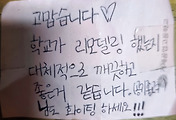 고맙습니다♡
학교가 리모델링 했는데
대체적으로 깨끗하고
좋은거 같습니다.
님도 화이팅 하세요!!!